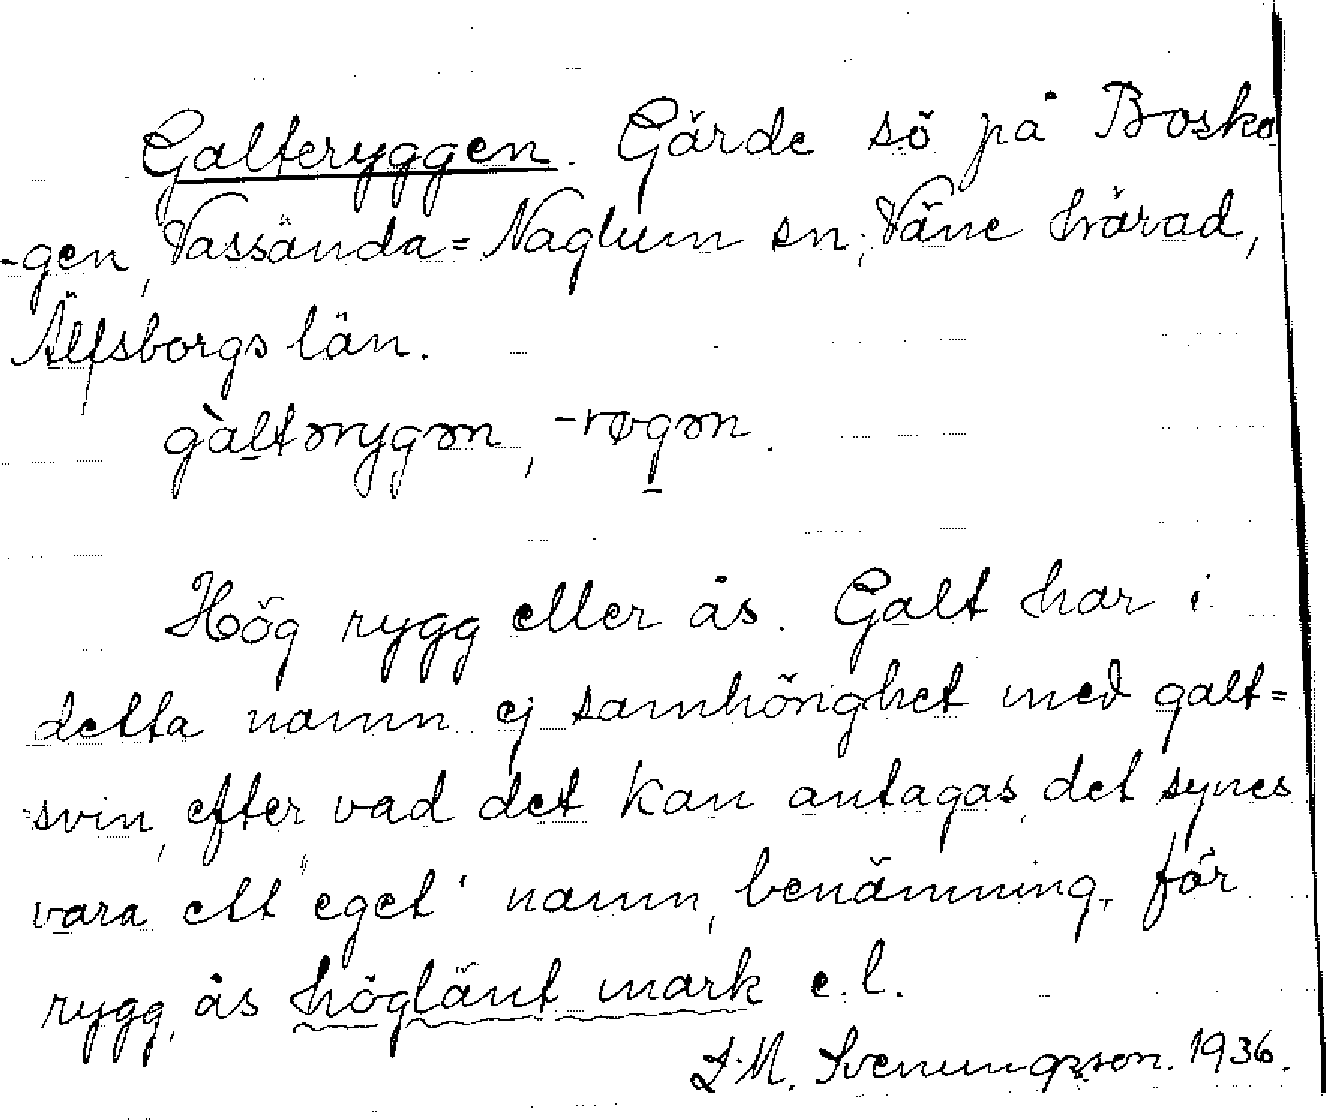 Galteryggen. Gärde sö på Bosko
-gen, Vassända=Naglum sn; Väne härad,
Älfsborgs län.
gàltərygən, -røgən.
Hög rygg eller ås. Galt har i
detta namn ej samhörighet med galt=
svin, efter vad det kan antagas, det synes
vara ett "eget" namn, benämning, för
rygg, ås höglänt mark e.l.
J.M. Svenungsson. 1936.